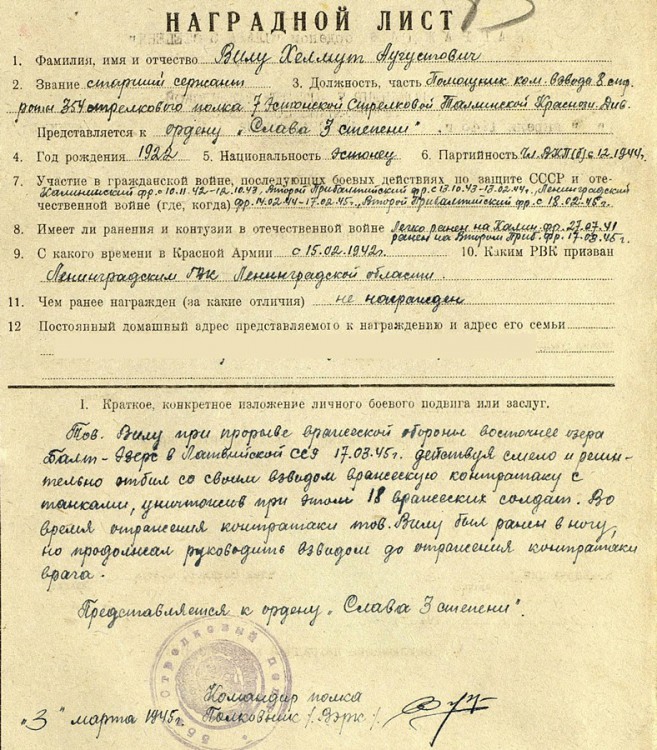 НАГРАДНОЙ ЛИСТ
1. Фамилия, имя и отчество Вилу Хелмут Аугустович
2. Звание старший сержант 3. Должность, часть Помощник ком. взвода 8 стр.
роты 354 стрелкового полка 7 Эстонской Стрелковой Таллинской Красноз. Див.
Представляется к ордену „Слава 3 степени".
4. Год рождения 1922 5. Национальность Эстонец 6. Партийность Чл. ВКП(б) с 12.1944г.
7. Участие в гражданской войне, последующих боевых действиях по защите СССР и оте-
Калининский фр. с 10.11.42-12.10.43, Второй Прибалтийский фр. с 13.10.43-13.02.44г., Ленинградский
чественной войне (где, когда) фр. 14.02.44-17.02.45г., Второй Прибалтийский фр. с 18.02.45г.
8. Имеет ли ранения и контузии в отечественной войне Легко ранен на Калин. фр. 27.07.41
ранен на Втором Приб. фр. 17.03.45г.
9. С какого времени в Красной Армии с 15.02.1942г. 10. Каким РВК призван
Ленинградским ГВК Ленинградской области.
11. Чем ранее награжден (за какие отличия) не награжден
12 Постоянный домашный адрес представляемого к награждению и адрес его семьи
I. Краткое, конкретное изложение личного боевого подвига или заслуг.
Тов. Вилу при прорыве вражеской обороны восточнее озера
Балт-Эзерс в Латвийской ССР 17.03.45г. действуя смело и реши-
тельно отбил со своим взводом вражескую контратаку с
танками, уничтожив при этом 18 вражеских солдат. Во
время отражения контратаки тов. Вилу был ранен в ногу,
но продолжал руководить взводом до отражения контратаки
врага.
Представляется к ордену „Слава 3 степени".
Стрелковый
Командир полка
„3" марта 1945г. Полковник /Вэрк/.